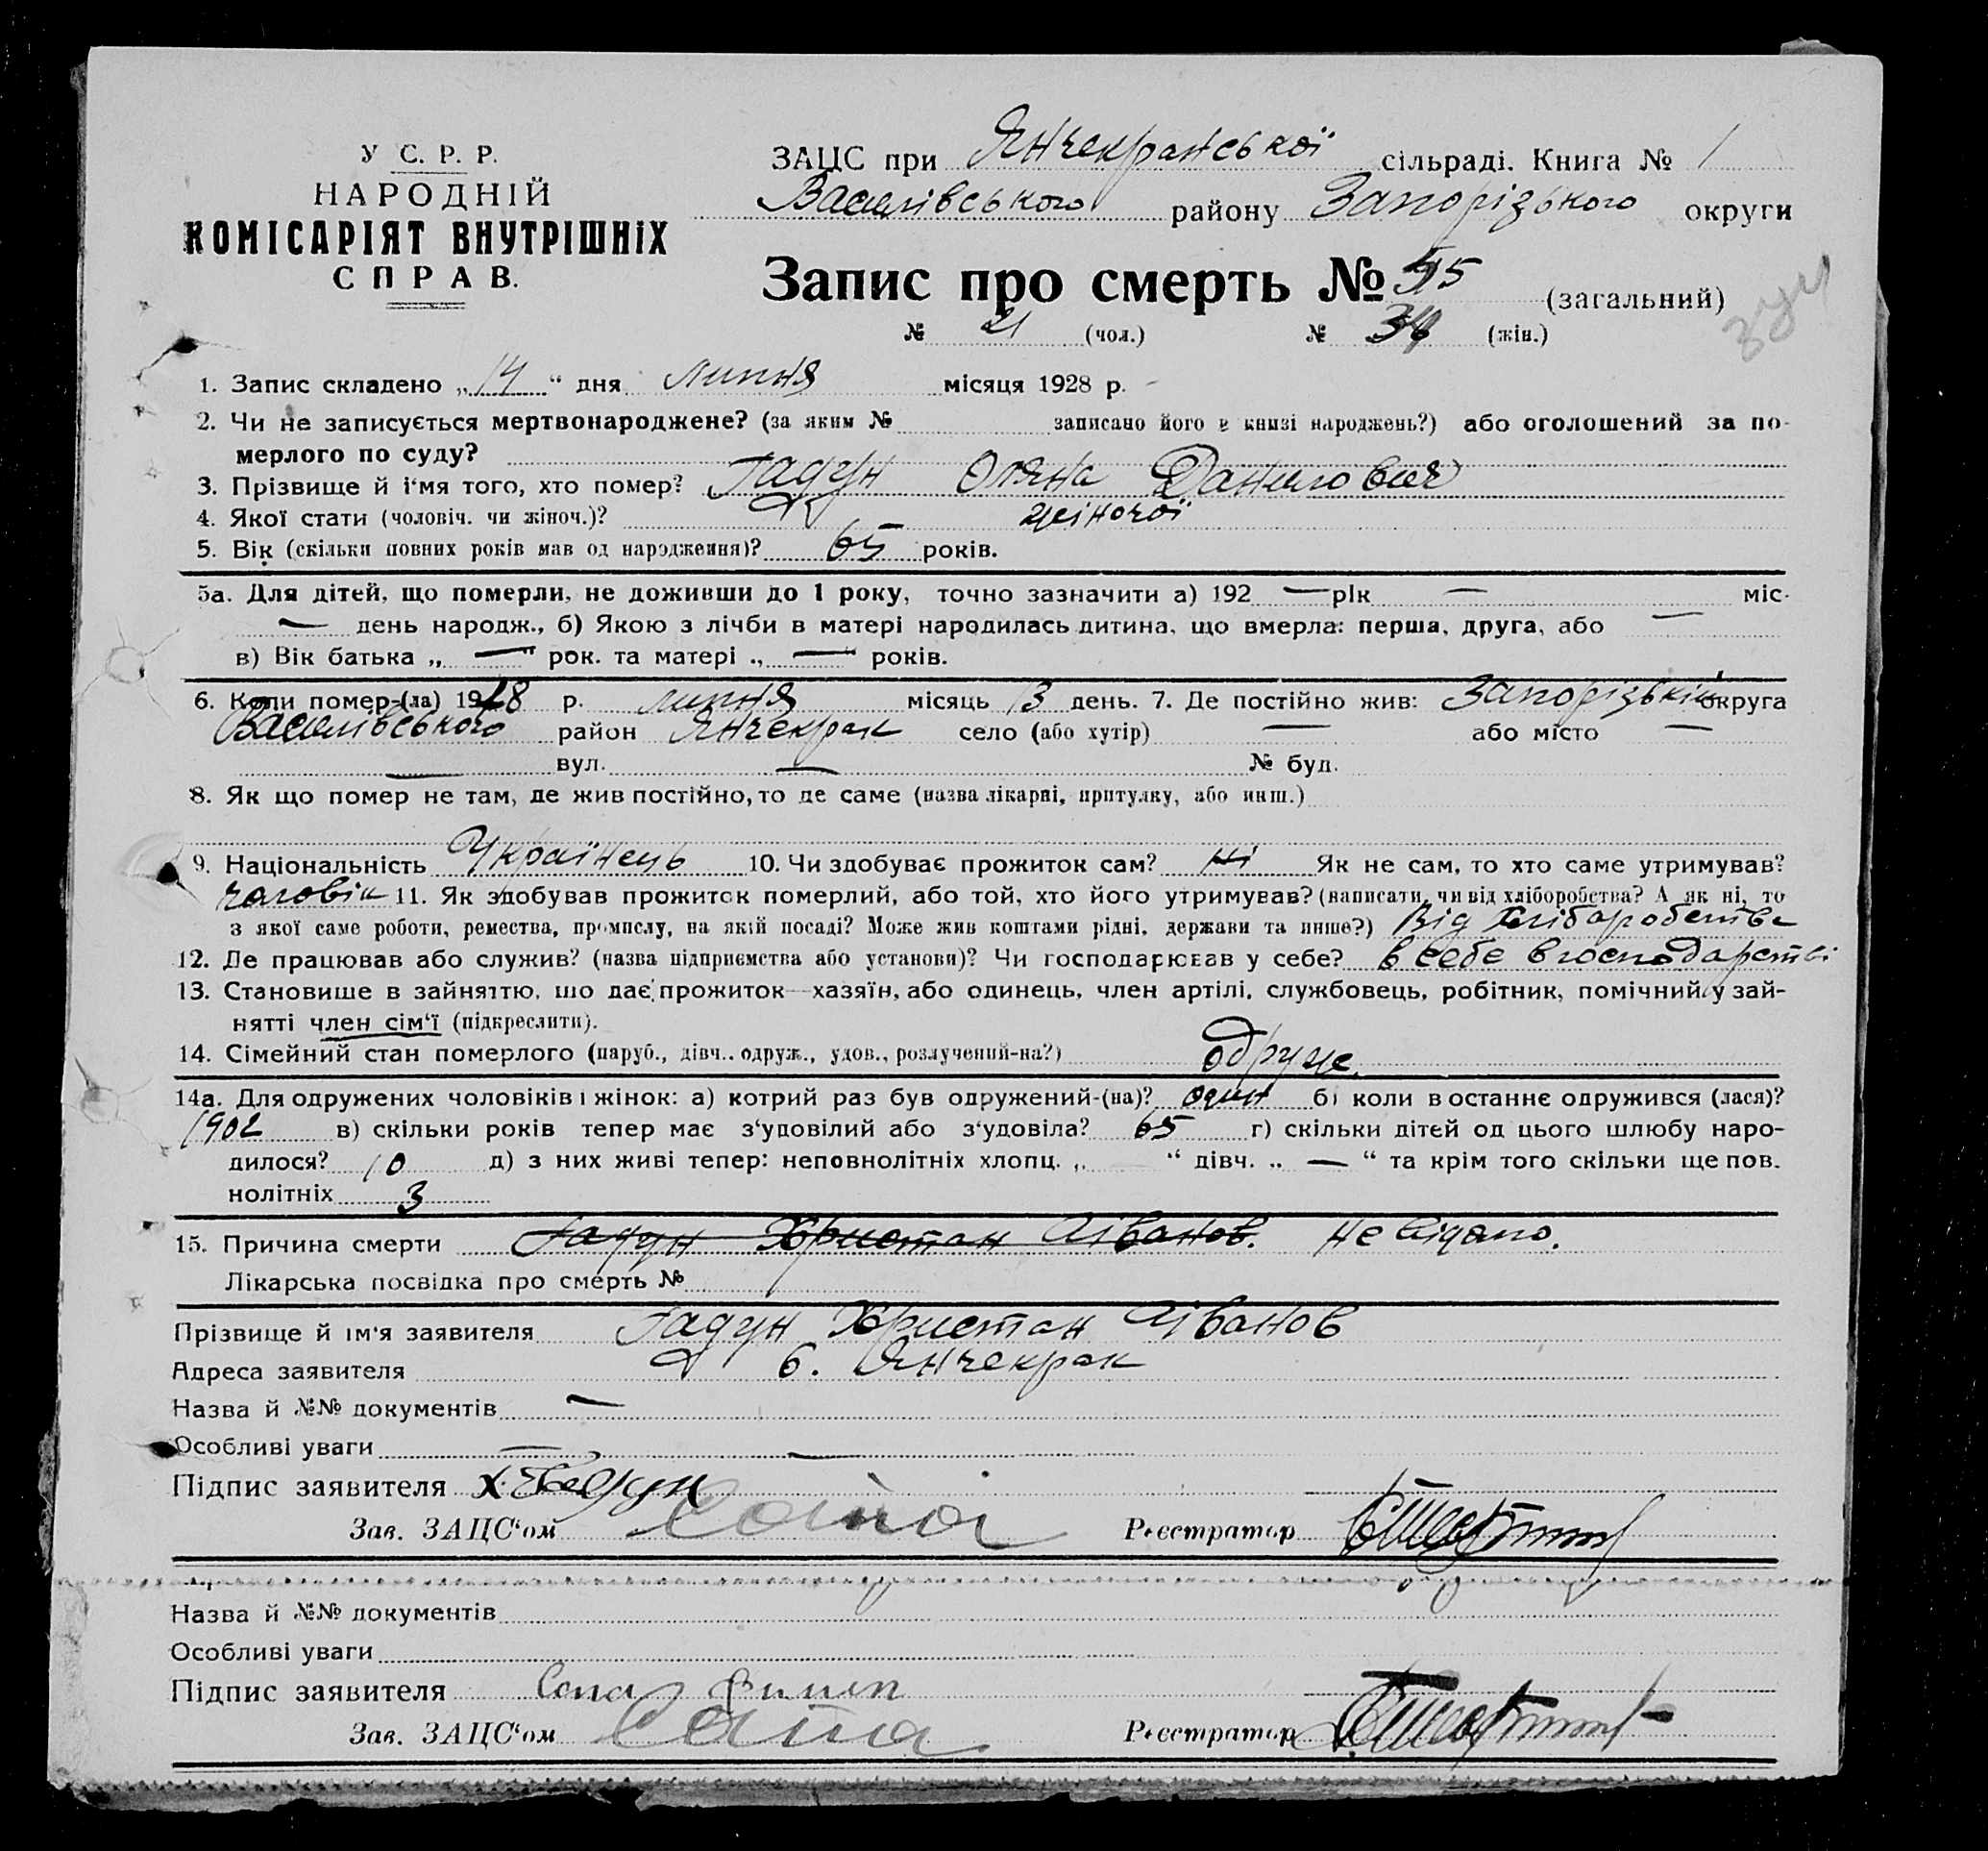 У С. Р. Р.
НАРОДНІЙ
КОМІСАРІЯТ ВНУТРІШНІХ
СПРАВ.
ЗАЦС при Янчекранської сільраді. Книга № 1
Василівського району Запорізького округи
Запис про смерть № 55 (загальний)
№ 21 (чол.) № 34 (жін.)
1. Запис складено „14“ дня липня місяця 1928 р.
2. Чи не записується мертвонароджене? (за яким № записано його в книзі народжень?) або оголошений за по-
мерлого по суду?
3. Прізвище й і‘мя того, хто помер? Гадун Оляна Данилов
4. Якої стати (чоловіч. чи жіноч.)? жіночої
5. Вік (скільки повних років мав од народження)? 65 років.
5а. Для дітей, що померли, не доживши до 1 року, точно зазначити а) 192 — рік — міс.
— день народж., б) Якою з лічби в матері народилась дитина, що вмерла: перша, друга, або —
в) Вік батька „ — “ рок. та матері „ — “ років.
6. Коли помер-(ла) 1928 р. липня місяць 13 день. 7. Де постійно жив: Запорізькій округа
Василівського район Янчекрак село (або хутір) — або місто —
— вул. — № буд.
8. Як що помер не там, де жив постійно, то де саме (назва лікарні, притулку, або инш.)
9. Національність Українець 10. Чи здобуває прожиток сам? ні Як не сам, то хто саме утримував?
чоловік 11. Як здобував прожиток померлий, або той, хто його утримував? (написати, чи від хліборобства? А як ні, то
з якої саме роботи, ремества, промислу, на якій посаді? Може жив коштами рідні, держави та инше?) Від хліборобства
12. Де працював або служив? (назва підприємства або установи)? Чи господарював у себе? в себе в господарстві
13. Становище в зайняттю, що дає прожиток—хазяїн, або одинець, член артілі, службовець, робітник, помічний у зай-
нятті член сім‘ї (підкреслити).
14. Сімейний стан померлого (паруб., дівч., одруж., удов., розлучений-на?) одруже.
14а. Для одружених чоловіків і жінок: а) котрий раз був одружений-(на)? один б) коли востаннє одружився (лася)?
1902 в) скільки років тепер має з‘удовілий або з‘удовіла? 65 г) скільки дітей од цього шлюбу наро-
дилося? 10 д) з них живі тепер: неповнолітніх хлопц. „ “ дівч. „ — “ та крім того скільки ще пов.
нолітніх 3
15. Причина смерти Гадун Христан Іванов. Не відано.
Лікарська посвідка про смерть №
Прізвище й ім‘я заявителя Гадун Христан Іванов
Адреса заявителя с. Янчекрак
Назва й №№ документів —
Особливі уваги — —
Підпис заявителя Х. Гадун
Зав. ЗАЦС‘ом Реєстратор
Назва й №№ документів
Особливі уваги
Підпис заявителя
Зав. ЗАЦС‘ом Реєстратор